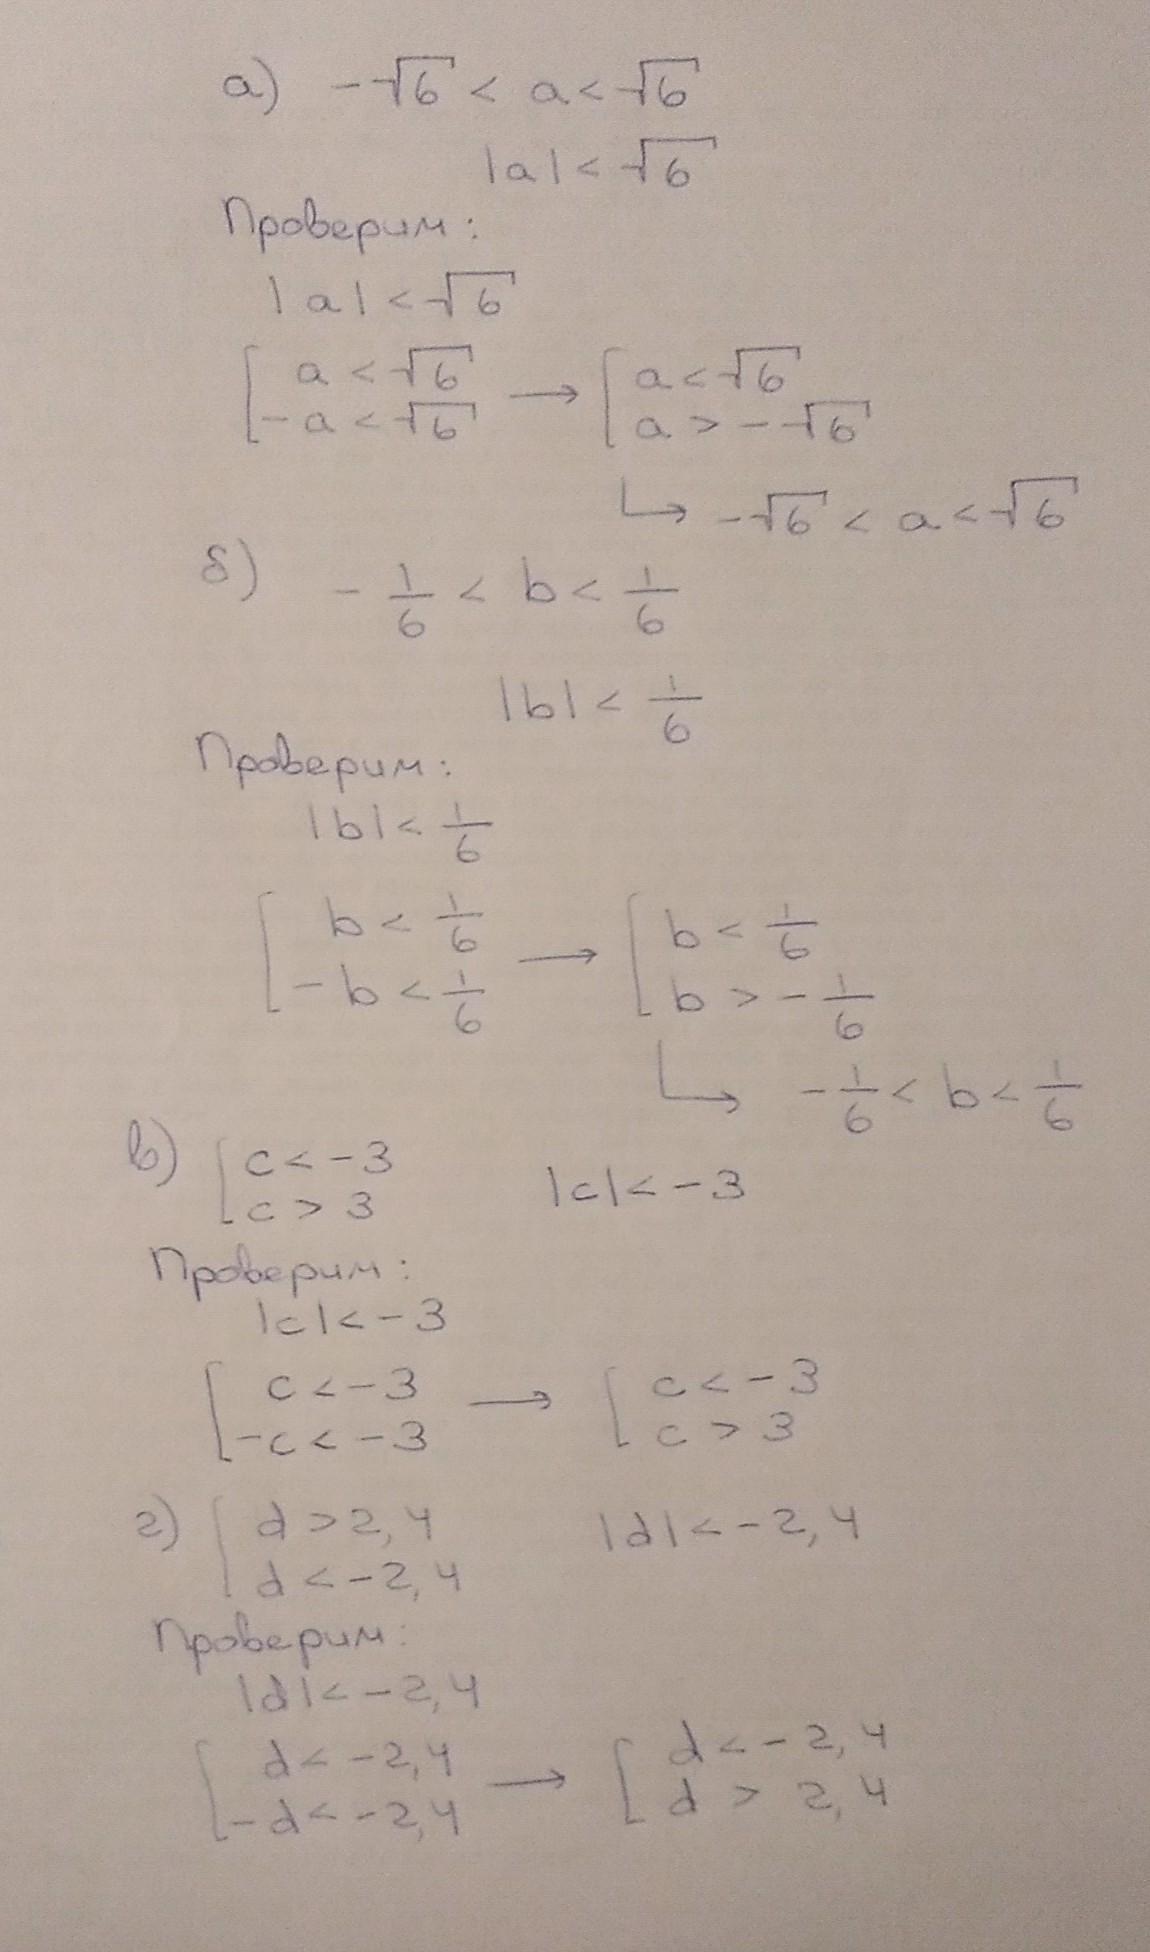 а) -√6 < a < √6
|a| < √6
Проверим:
|a| < √6
[ a < √6 → [ a < √6
-a < √6 a > -√6
↳ -√6 < a < √6
б) -1/6 < b < 1/6
|b| < 1/6
Проверим:
|b| < 1/6
[ b < 1/6 → [ b < 1/6
-b < 1/6 b > -1/6
↳ -1/6 < b < 1/6
в) [ c < -3 |c| < -3
c > 3
Проверим:
|c| < -3
[ c < -3 → [ c < -3
-c < -3 c > 3
г) [ d > 2,4 |d| < -2,4
d < -2,4
Проверим:
|d| < -2,4
[ d < -2,4 → [ d < -2,4
-d < -2,4 d > 2,4